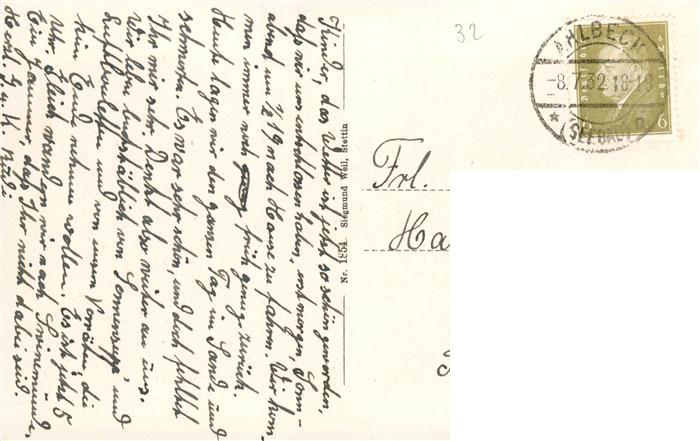 Kinder, das Wetter ist jetzt so schön geworden,
daß wir uns entschlossen haben, erst morgen, Sonn-
abend um ½ 19 nach Hause zu fahren. Wir kom-
men immer noch früh genug zurück.
Heute lagen wir den ganzen Tag im Sande und
schmoren. Es war sehr schön, und doch fehltet
Ihr mir sehr. Denkt also weiter an uns.
Wir leben buchstäblich von Sonnensuppe, und
Luftbuletten und von unsern Vorräten, die
kein Ende nehmen wollen. Es ist jetzt 5
Uhr. Gleich wandern wir nach Swinemünde.
Ein Jammer, daß Ihr nicht dabei seid.
Herzl. G. u. K. Rudi
Nr. 1854 Siegmund Weil, Stettin
32
AHLBECK
-8.7.32.18-19
* (SEEBAD) *
Deutsches Reich
6
Frl.
Ha